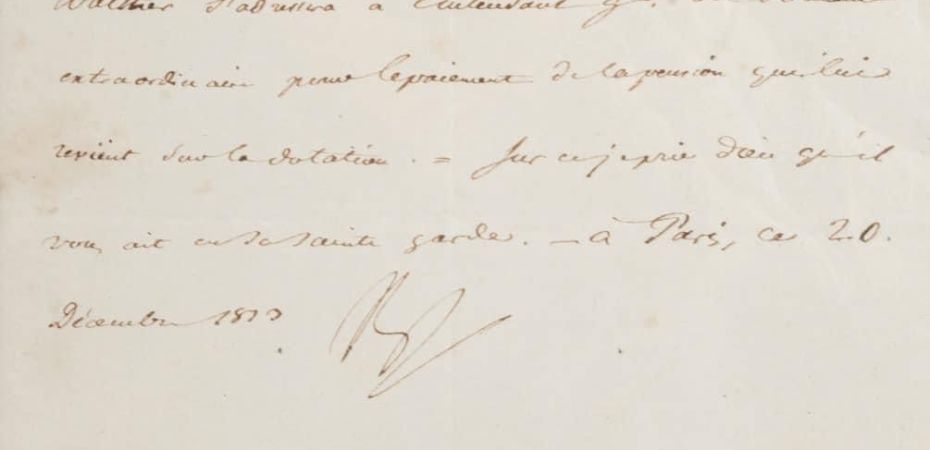 Walther s'adressera à l'intendant gal. du domaine
extraordinaire pour le paiement de la pension qui lui
revient sur la dotation. = Sur ce je prie Dieu qu'il
vous ait en Sa Sainte garde. — à Paris, ce 20.
Décembre 1813